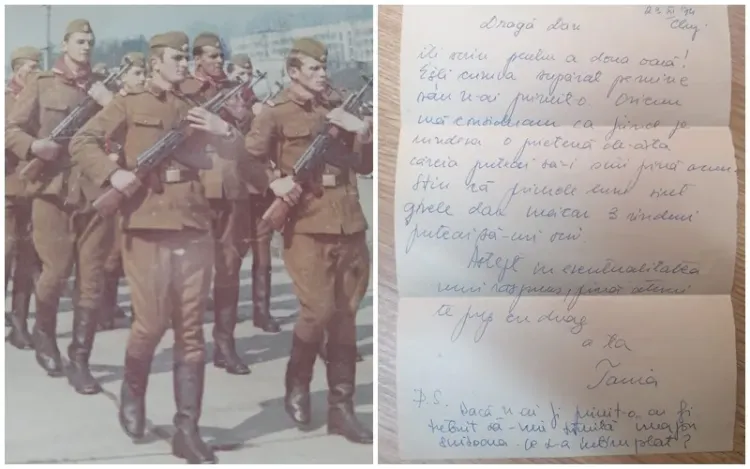 23 XI 74
Cluj.
Dragă Dan
îți scriu pentru a doua oară!
Ești cumva supărat pe mine
sau n-ai primit-o. Oricum
mă consideram ca fiind pe
o prietenă de-asta
căreia puteai să-i scrii până acum.
Știu că primele luni sînt
grele dar măcar 3 rînduri
puteai să-mi scrii.
Aștept în eventualitatea
unui răspuns, pînă atunci
te pup cu drag
a ta
Tania
P.S. Dacă n-ai fi primit-o ar fi
trebuit să-mi trimită
scrisoarea. Ce s-a întîmplat?